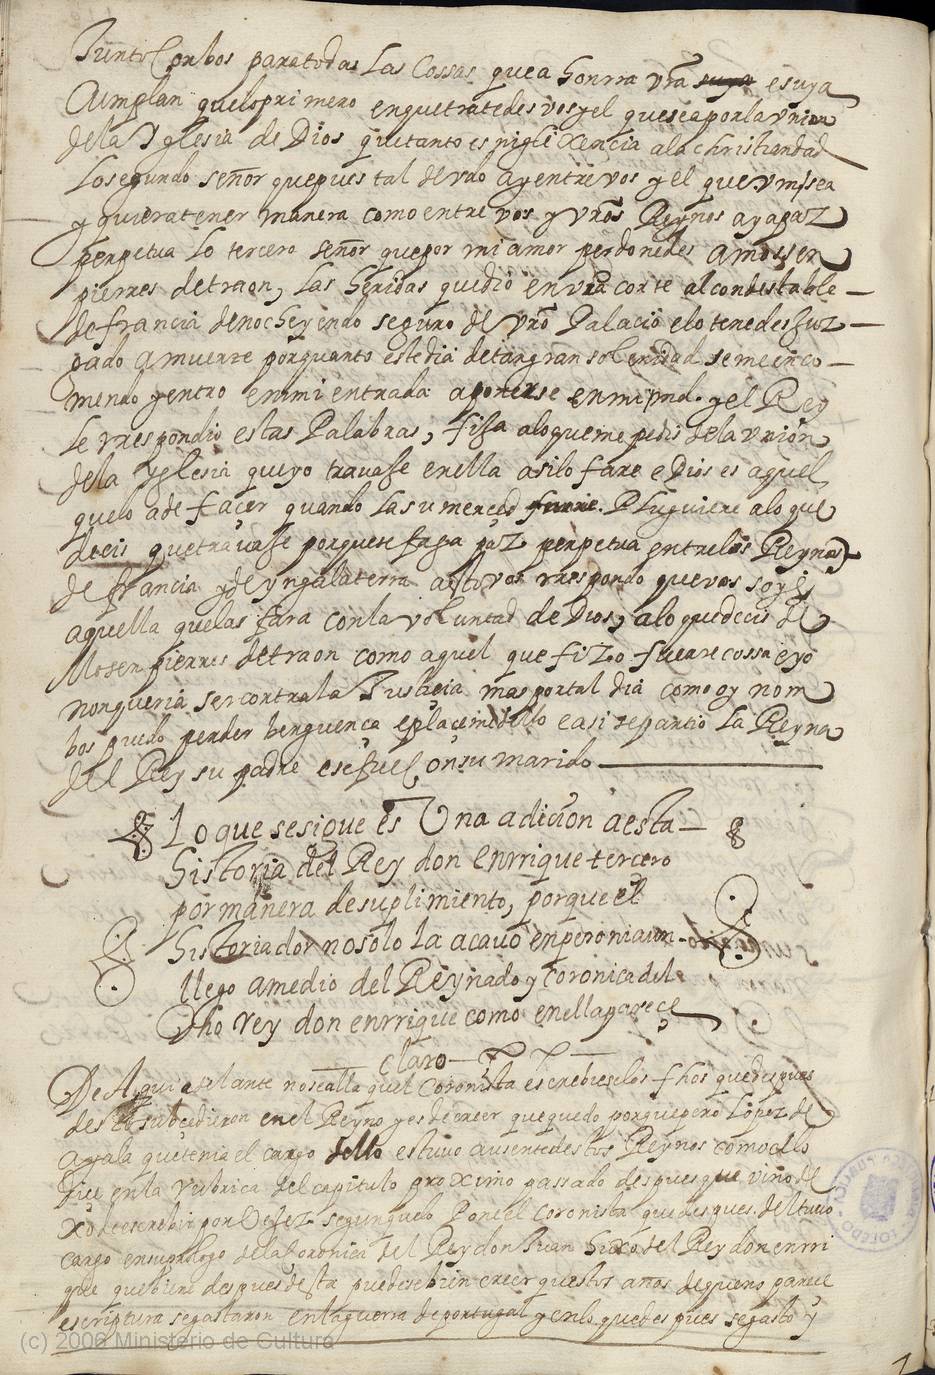 Junto con bos para todas las cossas que a honrra vrã suya es uya
Cumplan que lo primero en que tratedes vos y el que sea por la vnion
de la Yglesia de Dios que tanto es nigligencia a la christiandad
Lo segundo señor que pues tal devdo ay entre vos y el que vm̃ sea
y quiera tener manera como entre vos y vrõs Reynos aya paz
perpetua lo tercero señor que por mi amor perdonedes a mossen
pierres de traon, las heridas que dio en vrã corte al condestable
de francia de noche yendo seguro de vrõ Palacio e lo tenedes Juz
gado a muerte porquanto este dia de tan gran solenidad se me enco
mendo y entro en mi entrada a ponerse en mi md. y el Rey
le rrespondio estas Palabras, fija a lo que me pedis de la vnion
de la Yglesia que yo travasse en ella asi lo fare e Dios es aquel
que lo a de facer quando la su merced fuere. Pluguiere a lo que
decis que travasse porque se faga paz perpetua entre los Reynos
de francia y de yngalaterra a esto vos rrespondo que vos soys
aquella que las fara con la voluntad de Dios, a lo que decis de
Mosen pierres de traon como aquel que fizo fuearecossa e yo
non queria ser contra la Justicia mas por tal dia como oy non
bos puedo perder berguença e placeme dello e asi se partio la Reyna
del Rey su padre e se fue con su marido
Lo que se sigue es Una adicion a esta
historia del Rey don enrrique tercero
por manera de suplimiento, porque el
historiador no solo la acauo enpero ni aun
llego a medio del Reynado y coronica del
Dho rey don enrrique como en ella parece
claro
De Aqui adelante no se alla quel coronista escrebiese los fhos que despues
des to subcedieron en el Reyno y es de creer que quedo porque pero Lopez de
ayala que tenia el cargo dello estuuo ausente destos Reynos como el lo
dice en la rubrica del capitulo proximo passado despues que vino de
xo de escrebir por Vejez segun que lo Pone el coronista que despues del tuuo
cargo en su prologo de la Coronica del Rey don Juan hixo del Rey don enrri
que que biene despues desta puedese bien creer questos años de que no parece
escriptura se gastaron en la guerra de portugal y en lo que despues se gasto y
(c) 2006 Ministerio de Cultura